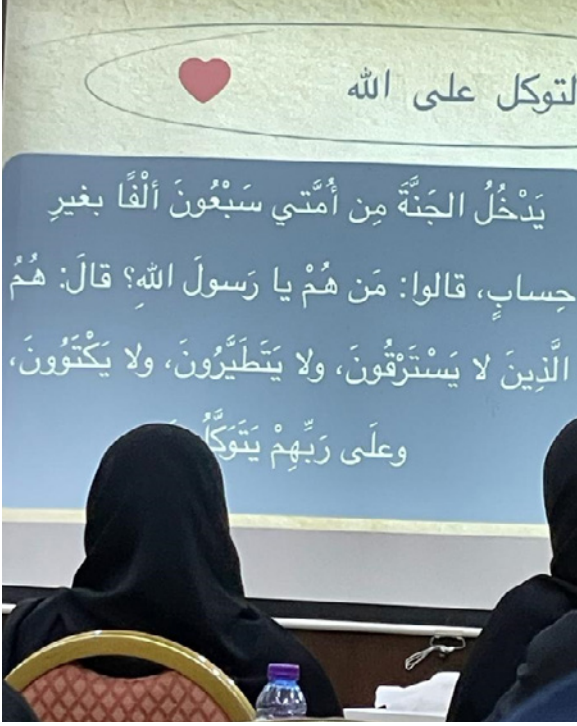 لتوكل على الله
يَدْخُلُ الجَنَّةَ مِن أُمَّتي سَبْعُونَ ألْفًا بغيرِ
حِسابٍ، قالوا: مَن هُمْ يا رَسولَ اللهِ؟ قالَ: هُمُ
الَّذِينَ لا يَسْتَرْقُونَ، ولا يَتَطَيَّرُونَ، ولا يَكْتَوُونَ،
وعلَى رَبِّهِمْ